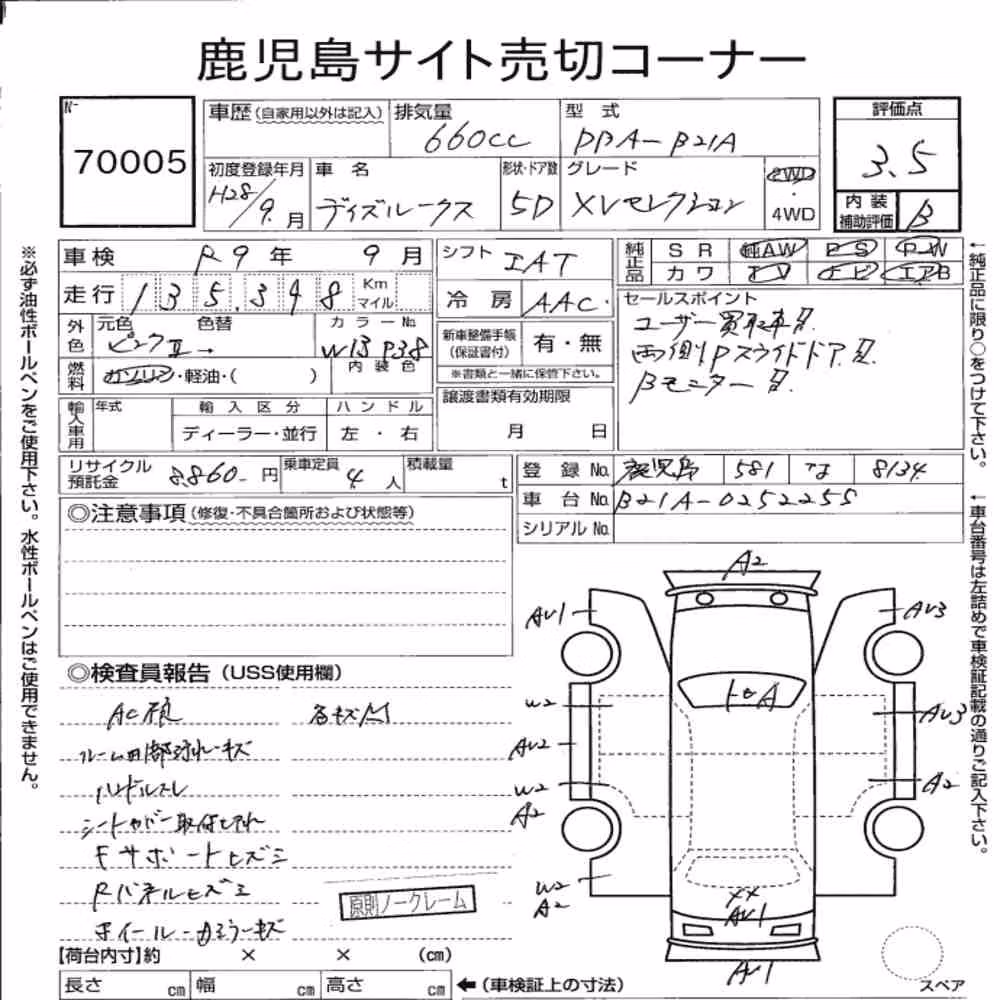 鹿児島サイト売切コーナー
No 70005
車歴 (自家用以外は記入)
排気量 660cc
型式 DBA-B21A
評価点 3.5
初度登録年月 H28/9.月
車名 デイズルークス
形状・ドア数 5D
グレード XVセレクション
2WD・4WD
内装補助評価 B
車検 R9年 9月
シフト IAT
純正品 SR 純AW PS PW
カワ TV ナビ エアB
走行 135,398 Km マイル
冷房 AAC
セールスポイント
ユーザー買取車
両側Pスライドドア
Bモニター
外色 元色 ピンクⅡ 色替 →
カラーNo. W13 P38
内装色
新車整備手帳(保証書付) 有・無
※書類と一緒に保管下さい。
燃料 ガソリン・軽油・( )
輸入車用 年式 輸入区分 ハンドル
ディーラー・並行 左・右
譲渡書類有効期限
月 日
リサイクル預託金 8,860-円
乗車定員 4人
積載量 t
登録No. 鹿児島 581 な 8134
車台No. B21A-0252255
シリアルNo.
◎注意事項(修復・不具合箇所および状態等)
◎検査員報告(USS使用欄)
ルーム内部汚れ・キズ
ハンドルスレ
シートカバー取付
Fサポートヒズミ
Rパネルヒズミ
ホイール・カバーキズ
原則ノークレーム
A2
AV1
AV3
W2
AV2
AV3
W2
A2
A2
トビA
W2
A2
XX
AV1
AV1
スペア
【荷台内寸】約 × × (cm)
長さ cm 幅 cm 高さ cm ←(車検証上の寸法)
※必ず油性ボールペンをご使用下さい。水性ボールペンはご使用できません。
←純正品に限り○をつけて下さい。
←車台番号は左詰めで車検証記載の通りご記入下さい。